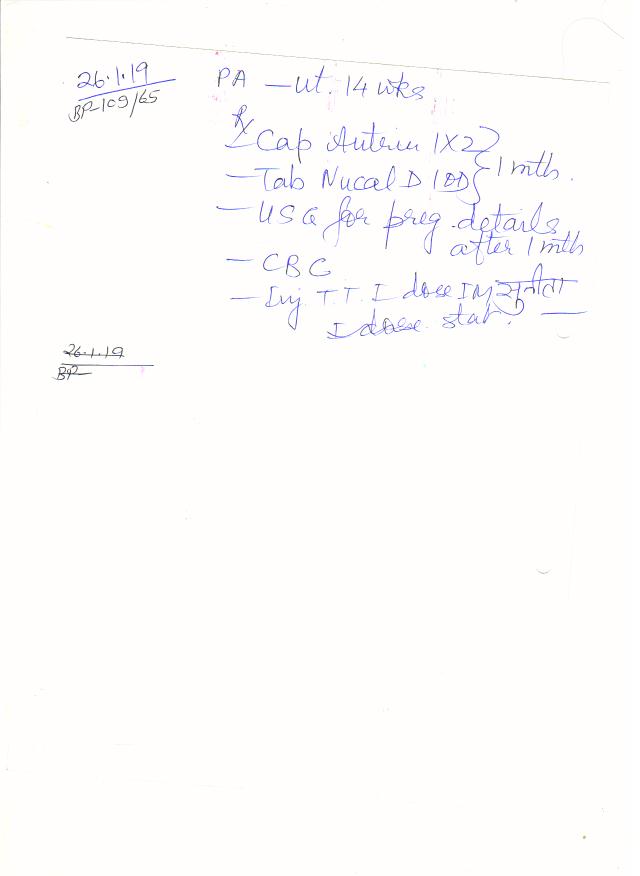 26.1.19
BP-109/65
PA - Ut. 14 wks.
Rx
- Cap Auterin 1X2
- Tab Nucal D 1OD } 1 mth.
- USG for preg. details
after 1 mth
- CBC
- Inj T.T. I dose IM सुनीता
I dose stat.
26.1.19
BP-